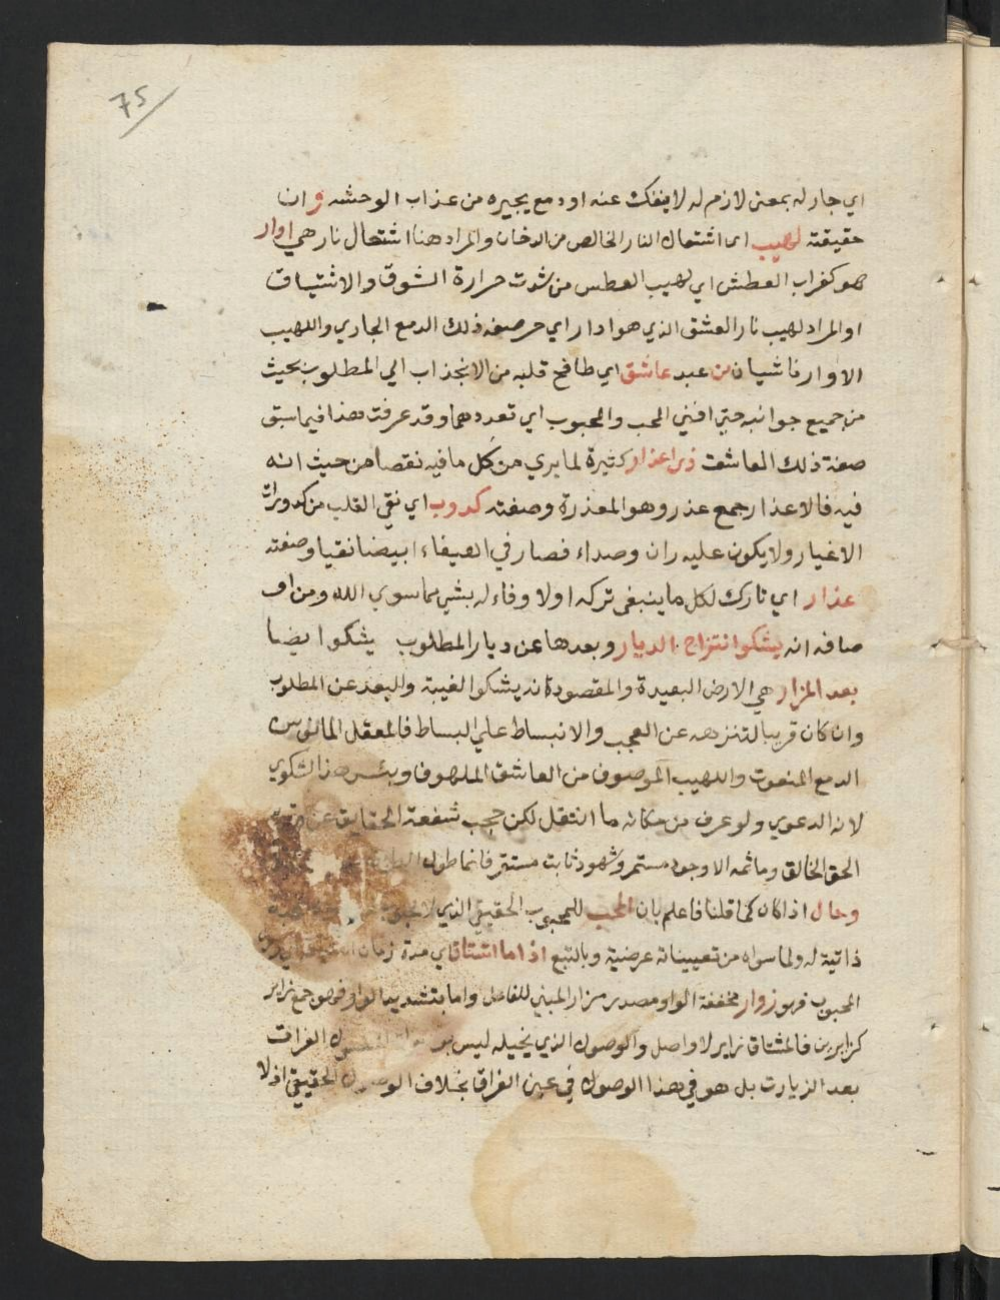 75
اي جار له بمعني لازم له لا ينفك عنه او دمع يجيره من عذاب الوحشه وان
حقيقته لهيب اي اشتعال النار الخالص من الدخان والمراد هنا اشتعال نار هي اوار
هو كغراب العطش اي لهيب العطس من شدت حرارة الشوق والاشتياق
او المراد لهيب نار العشق الذي هو ادار اي حر صفه ذلك الدمع الجاري واللهيب
الاوار ناشيان من عبد عاشق اي طافح قلبه من الانجذاب الي المطلوب بحيث
من جميع جوانبه حتي افني المحب والمحبوب اي تعددهما وقد عرفت هذا فيما سبق
صفة ذلك العاشق ذي اعذار كثيرة لما يري من كل ما فيه نقصا من حيث انه
فيه فالاعذار جمع عذر وهو المعذرة وصفته كدوب اي نقي القلب من كدورات
الاغيار ولا يكون عليه ران وصداء فصار في الصيفاء ابيضا نقيا وصفته
عذار اي تارك لكل ما ينبغي تركه اولا وفاء له بشي مما سوي الله ومن او
صافه انه يشكوا انتزاح الديار وبعدها عن ديار المطلوب يشكوا ايضا
بعد المزار هي الارض البعيدة والمقصود انه يشكوا الغيبة والبعد عن المطلوب
وان كان قريبا لتنزهه عن العجب والانبساط علي البساط فالمعقل المانوس
الدمع المنعوت واللهيب الموصوف من العاشق الملهوف وبئس هذا الشكوي
لانه الدعوي ولو عرف من مكانه ما انتقل لكن حجب شفعة الحقايق عن
الحق الخالق وما ثمه الا وجود مستمر وشهود ثابت مستقر فانما طول
وحال اذا كان كما قلنا فاعلم بان المحب للمحبوب الحقيقي الذي
ذاتية له ولما سواه من تعييناته عرضية وبالتبع اذا ما اشتاق اي مدة زمان
المحبوب فهو زوار مخففة الواو مصدر مزار المبني للفاعل واما بتشديد الواو فهو جمع زاير
كزايرين فالمشتاق زاير لا واصل والوصول الذي يخيله ليس الفراق
بعد الزيارت بل هو في هذا الوصول في عين الفراق بخلاف الوصول الحقيقي اذ لا